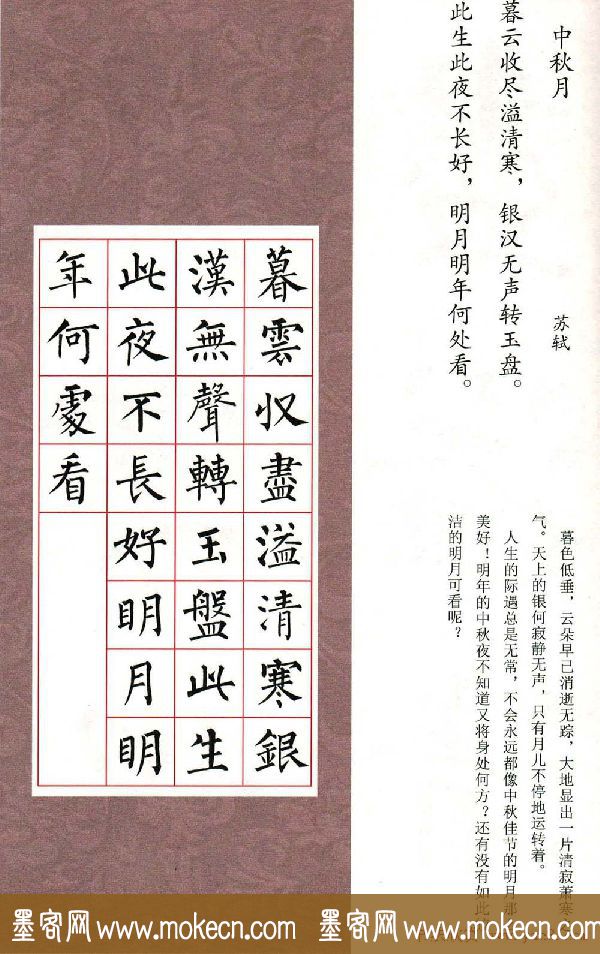 中秋月
苏轼
暮云收尽溢清寒，银汉无声转玉盘。
此生此夜不长好，明月明年何处看。
暮色低垂，云朵早已消逝无踪，大地显出一片清寂萧寒
气。天上的银何寂静无声，只有月儿不停地运转着。
人生的际遇总是无常，不会永远都像中秋佳节的明月那
美好！明年的中秋夜不知道又将身处何方？还有没有如此
洁的明月可看呢？
暮雲収盡溢清寒銀
漢無聲轉玉盤此生
此夜不長好明月明
年何處看
墨客网 www.mokecn.com 墨客网 www.mokecn.com 墨客网